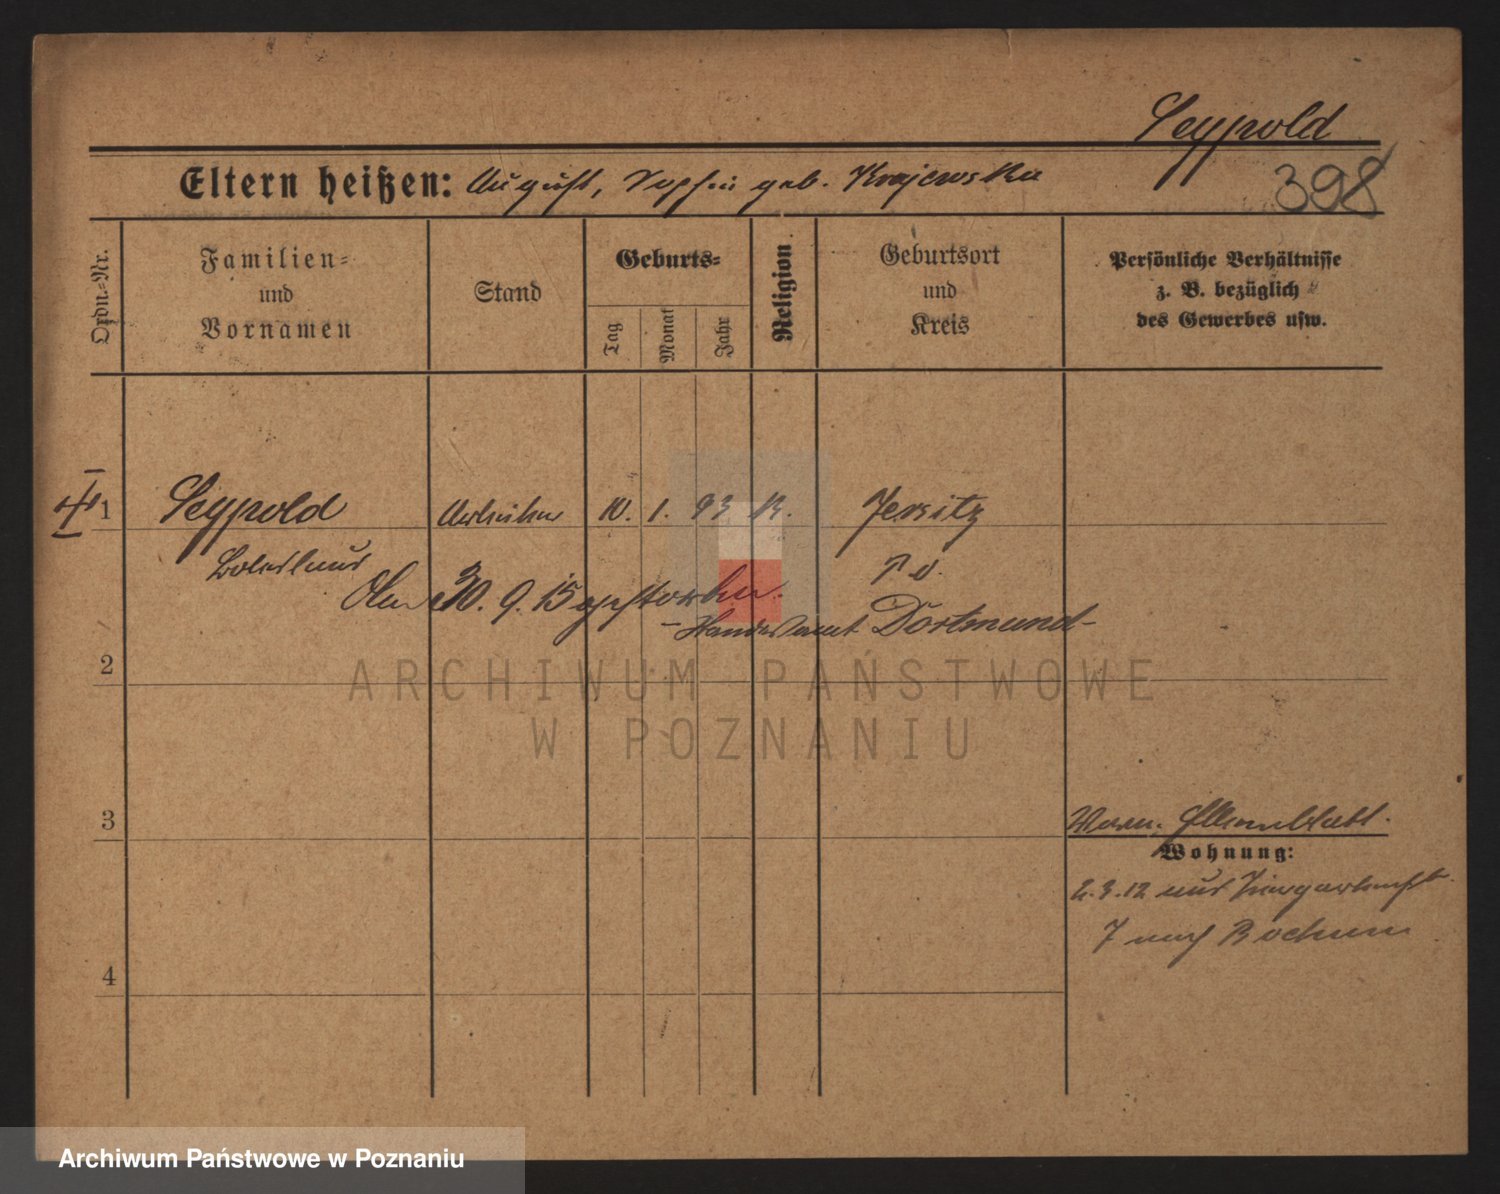 Seypold
398
Eltern heißen: August, Sophie geb. Krajewska
Ordn.-Nr.
Familien-
und
Vornamen
Stand
Geburts-
Tag
Monat
Jahr
Religion
Geburtsort
und
Kreis
Persönliche Verhältnisse
z. B. bezüglich
des Gewerbes usw.
1 Seypold Arbeiter 10. 1. 93 K. Jersitz
Boleslaus P. O.
Am 30. 9. 15 gestorben.
- Standesamt Dortmund -
2
ARCHIWUM PAŃSTWOWE
W POZNANIU
3
Wohnung:
2.3.12 aus
7 nach Bochum
4
Archiwum Państwowe w Poznaniu